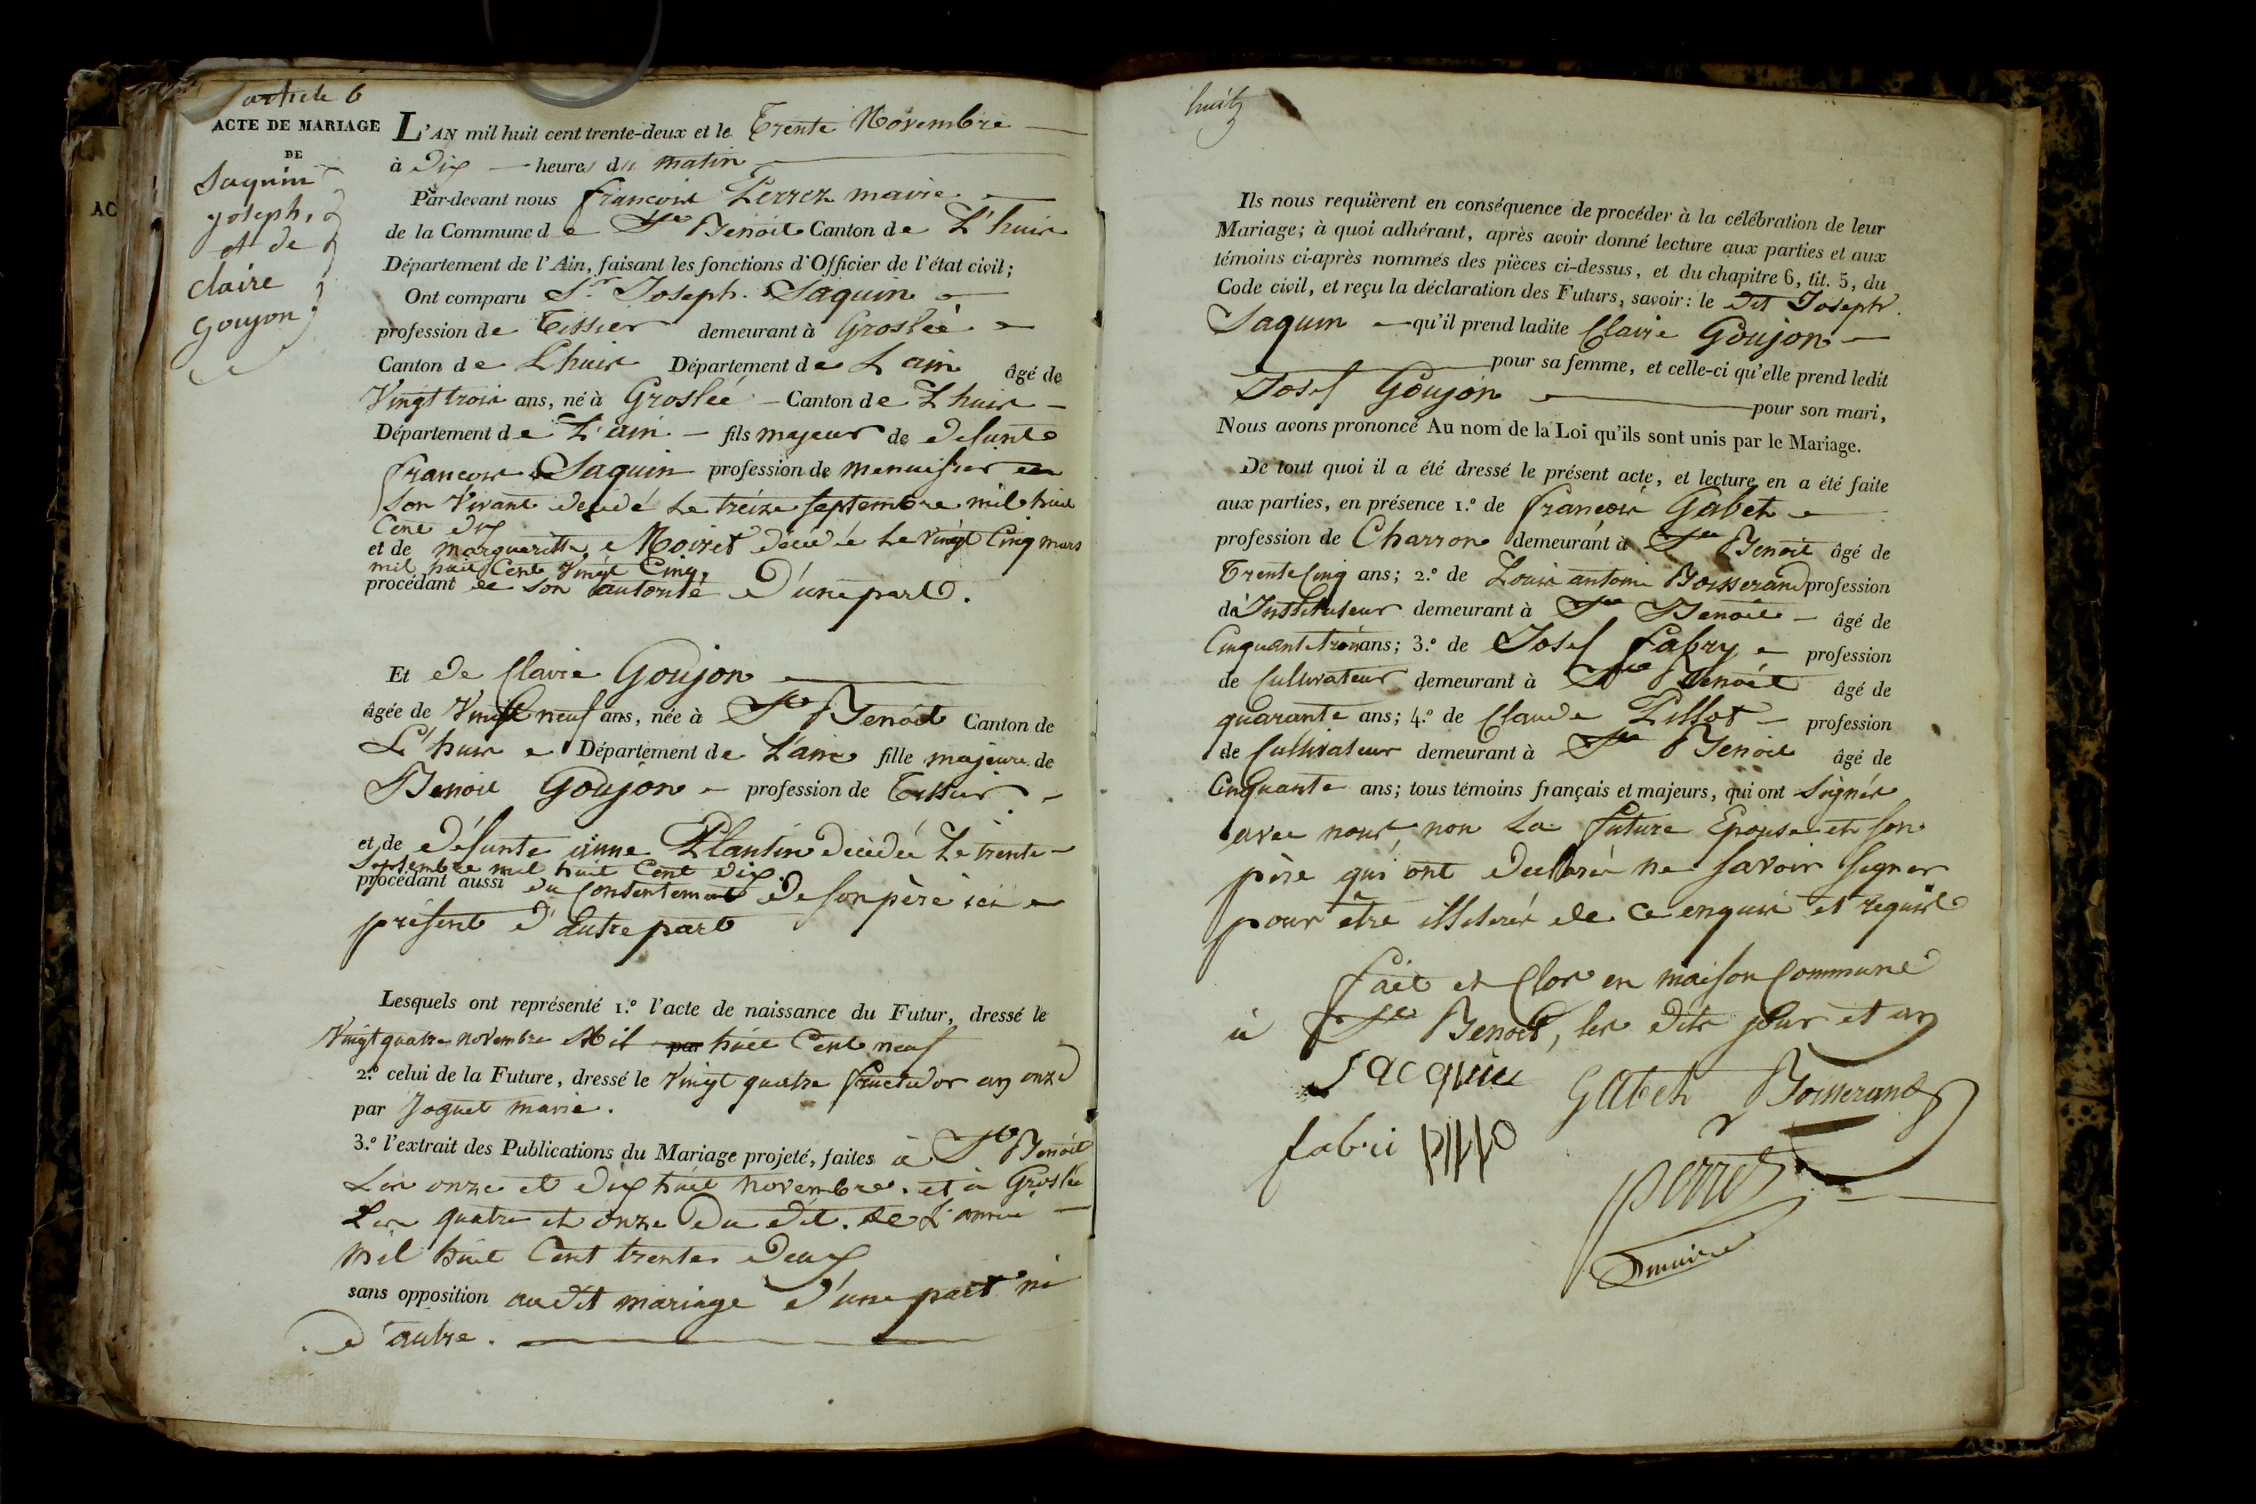 article 6
ACTE DE MARIAGE
DE
Saquin
joseph,
et de
Claire
Goujon
AC
L'AN mil huit cent trente-deux et le Trente Novembre
à dix heures du matin
Par-devant nous françois Perret maire
de la Commune de St Benoit Canton de L'huis
Département de l'Ain, faisant les fonctions d'Officier de l'état civil;
Ont comparu Sr Joseph Saquin
profession de Tissier demeurant à Groslée
Canton de Lhuis Département de Lain âgé de
Vingt trois ans, né à Groslée Canton de Lhuis
Département de L'ain fils majeur de defunt
francois Saquin profession de menuisier en
Son Vivant décédé Le treize septembre mil huit
Cent dix
et de margueritte Moiret décédée Le Vingt Cinq mars
mil huit Cent Vingt Cinq,
procédant de son autorité D'une part.
Et de Claire Goujon
âgée de Vingt neuf ans, née à St Benoit Canton de
L'huis Département de L'ain fille majeure de
Benoit Goujon profession de Tissier
et de défunte anne Plantin décédée Le trente
Septembre mil huit Cent dix
procédant aussi du Consentement de son père ici
présent d'autre part
Lesquels ont représenté 1.º l'acte de naissance du Futur, dressé le
Vingt quatre novembre Mil par huit Cent neuf
2.º celui de la Future, dressé le Vingt quatre fructidor an onze
par Joguet marie.
3.º l'extrait des Publications du Mariage projeté, faites à St Benoit
Les onze et dix huit novembre. et à Groslée
Les quatre et onze du dit. de L'année
Mil huit Cent trente deux
sans opposition audit mariage d'une part ni
d'autre.
huit
Ils nous requièrent en conséquence de procéder à la célébration de leur
Mariage; à quoi adhérant, après avoir donné lecture aux parties et aux
témoins ci-après nommés des pièces ci-dessus, et du chapitre 6, tit. 5, du
Code civil, et reçu la déclaration des Futurs, savoir: le dit Joseph
Saquin qu'il prend ladite Claire Goujon
pour sa femme, et celle-ci qu'elle prend ledit
Josef Goujon pour son mari,
Nous avons prononcé Au nom de la Loi qu'ils sont unis par le Mariage.
De tout quoi il a été dressé le présent acte, et lecture en a été faite
aux parties, en présence 1.º de françois Gabet
profession de Charron demeurant à St Benoit âgé de
Trente Cinq ans; 2.º de Louis antoine Boisserand profession
de Instituteur demeurant à St Benoit âgé de
Cinquante trois ans; 3.º de Josef fabry profession
de Cultivateur demeurant à St Benoit âgé de
quarante ans; 4.º de Claude Pillot profession
de Cultivateur demeurant à St Benoit âgé de
Cinquante ans; tous témoins français et majeurs, qui ont signés
avec nous non La future Epouse et son
père qui ont déclaré ne savoir signer
pour être illiterés de ce enquis et requis
fait et Clos en maison Commune
à St Benoit, les dits jour et an
Sacquin Gabet Boisserand
fabri pillo
perret
maire